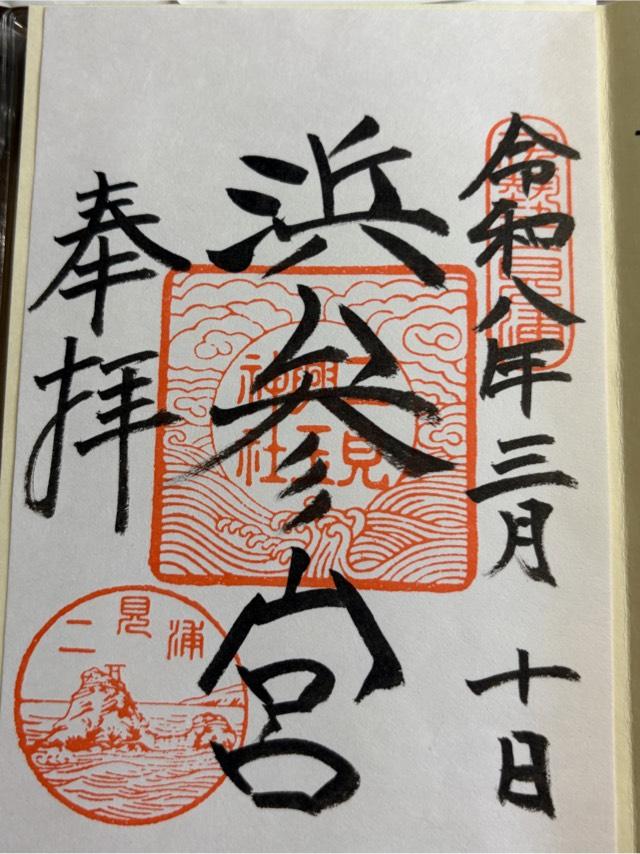 令和八年三月 十日
伊勢二見浦
浜参宮
二見
興玉
神社
奉拝
二見浦